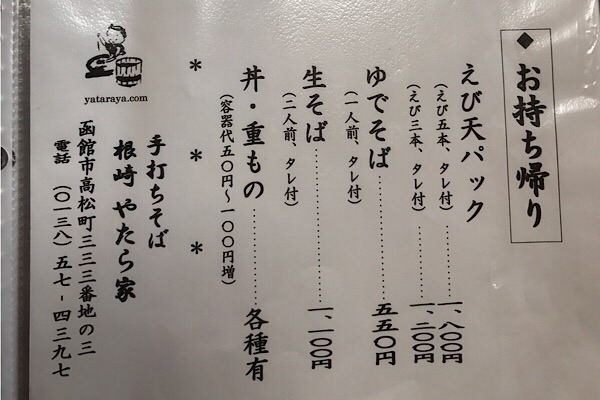 ◆お持ち帰り
えび天パック
（えび五本、タレ付）………一、八〇〇円
（えび三本、タレ付）………一、二〇〇円
ゆでそば………………五五〇円
（一人前、タレ付）
生そば………………一、一〇〇円
（二人前、タレ付）
丼・重もの…………各種有
（容器代五〇円〜一〇〇円増）
＊　＊　＊
手打ちそば
根崎 やたら家
函館市高松町三三三番地の三
電話　（〇一三八）五七－四三九七
yataraya.com